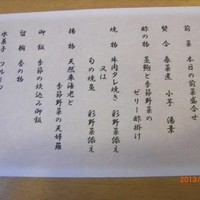 前菜 本日の前菜盛合せ
焚合 春茶煮 小芋 湯葉
酢の物 蒸鮑と季節野菜の
ゼリー酢掛け
焼物 牛肉タレ焼き 彩野菜添え
又は
旬の焼魚 彩野菜添え
揚物 天然車海老と
季節野菜の天婦羅
御飯 季節の炊込み御飯
留椀 香の物
水菓子 フルーツ
2013/